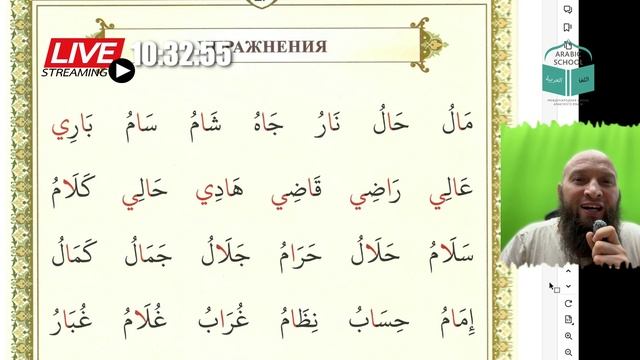 LIVE
STREAMING
10:32:55
РАЖНЕНИЯ
ARABIC
SCHOOL
اللغة العربية
مَالُ حَالُ نَارُ جَاهُ شَامُ سَامُ بَارِي
عَالِي رَاضِي قَاضِي هَادِي حَالِي كَلَامُ
سَلَامُ حَلَالُ حَرَامُ جَلَالُ جَمَالُ كَمَالُ
إِمَامُ حِسَابُ نِظَامُ غُرَابُ غُلَامُ غُبَارُ